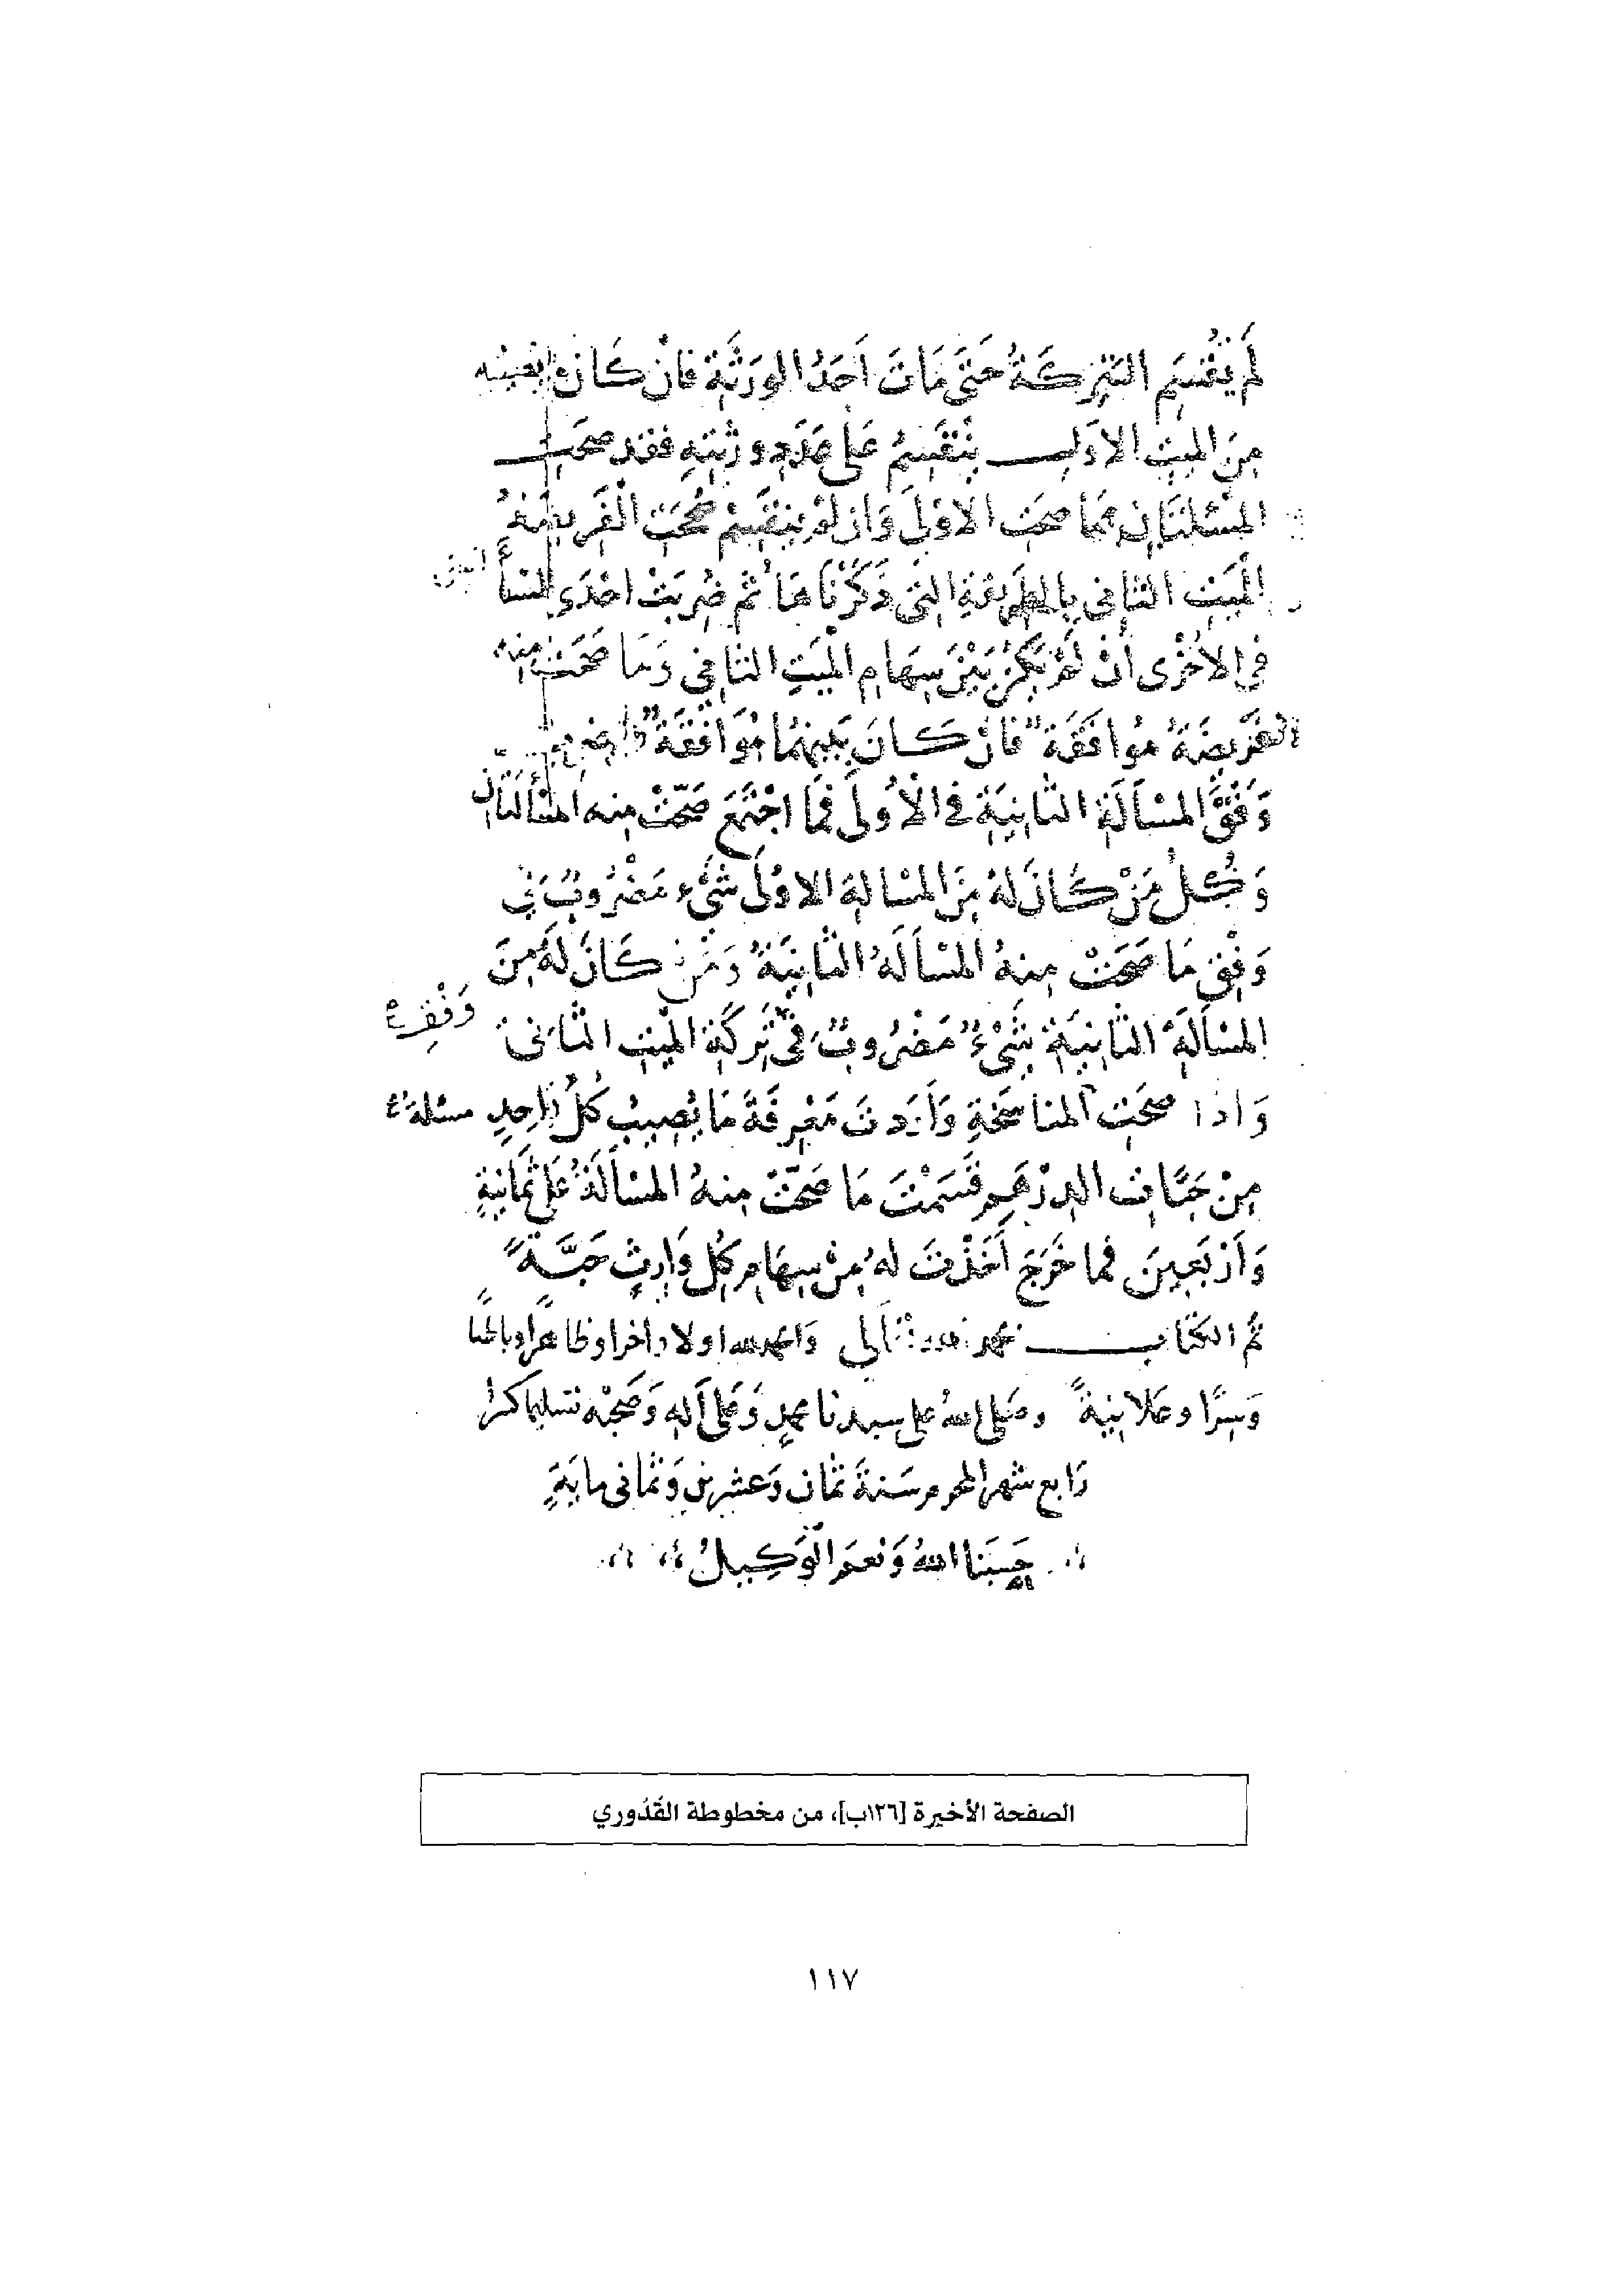 لَمْ يُقْسَمِ التَّرِكَةُ حَتَّى مَاتَ اَحَدُ الورَثَةِ فَانْ كَانَ
مِنَ الميِتِ الاوَلِ يَنْقَسِمُ عَلى عَدَدِ ورثتِهِ فقد صحَت
المسْئلتَانِ مِمَا صحَت الاوْلَى وَان لَمْ يَنقَسِمْ صُحَحَت الْفَرِيضَةُ
الْمَيِت الثانِي بِالطريقةِ التِى ذَكَرْنَاهَا ثُمَّ ضُرِبَتْ احْدَى المسْأ
فِي الاخْرَى انْ لَمْ يَكُنْ بَيْنَ سِهَامِ الْمَيَتِ الثانِي وَمَا صَحَتْ مِنه
الفَريضَةُ مُوافَقَةٌ فَانْ كَانَ بَيْنَهُمَا مُوَافَقَةٌ
وَفْقَ المسْاَلَةِ الثانِيَةِ فِي الْاُولَى فَمَا اجْتَمَعَ صَحّتْ مِنه المسْألتَانِ
وَكُل مَنْ كَانَ لَهُ مِنَ المسْالةِ الاوْلَى شَيْء مَضْرُوبٌ فِي
وَفْقِ مَا صَحَتْ مِنهُ المسْاَلَةُ الثانِيَةُ وَمَن كَانَ لَهُ مِنَ
المسْاَلَةِ الثانِيَةِ شَيْءٌ مَضْرُوبٌ فِي تَرِكَةِ الميِتِ الثانِى
وَفْقِ
وَاذا صحَت المناسَخَةِ وَاَرَدتَ مَعْرِفَةَ مَا يُصِيبُ كُلُّ وَاحِدٍ
مسئلة
مِنْ حَبَّاتِ الدِرْهَمِ قَسَمْتَ مَا صَحّتْ مِنهُ المسْاَلَةُ عَلى ثَمَانِيَةٍ
وَاَرْبَعِينَ فما خَرَجَ اَخَذْتَ لَهُ مِنْ سِهَامِ كُلِ وَارِثٍ حَبَّةً
تمَّ الكتَاب والحمد لله اولا واخرا وظاهرًا وباطنًا
وَسِرًّا وعَلانِيَةً وصَلى اللهُ على سيدنا محمدٍ وَعَلى اَلِهِ وَصَحْبِه تسليما كثيرا
رَابع شهر المحرم سَنةَ ثمان وعشرين وَثمانى مايَةٍ
حَسبَنا اللهُ وَنعمَ الوَكِيلُ
الصفحة الأخيرة [١٢٦ب]، من مخطوطة القُدُوري
١١٧